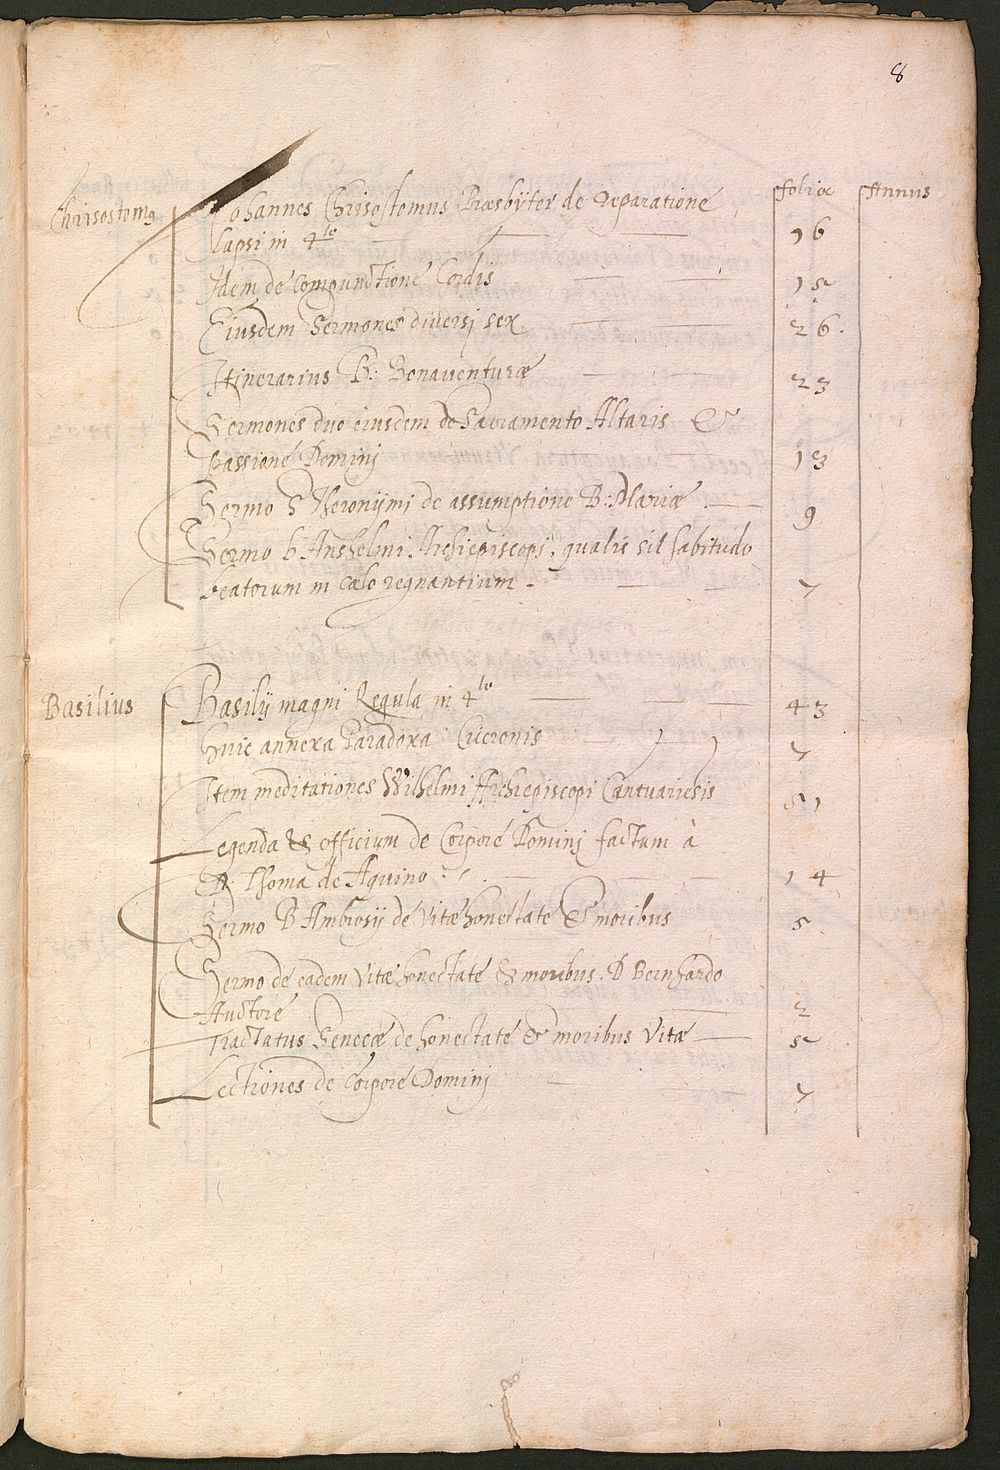 8
Foliæ Annus
Chrisostom9 Johannes Chrisostomus Præsbyter de reparatione
lapsi in 4to 16
Idem de Compunctione Cordis 15
Eiusdem Sermones diversi sex 26.
Itinerarius B: Bonaventuræ 23
Sermones duo eiusdem de Sacramento Altaris &
passione Domini 13
Sermo S Iheronijmi de assumptione B: Mariæ 9
Sermo b Anshelmi Archiepiscopi, qualis sit habitudo
beatorum in cælo regnantium. 7
Basilius Basilij magni Regula in 4to 43
Huic annexa Paradoxa Ciceronis 7
Item meditationes Wilhelmi Archiepiscopi Cantuariensis 51
Legenda & officium de Corpore Domini factum à
D. Thoma de Aquino 14
Sermo B Ambrosij de Vitæ honestate & moribus 5
Sermo de eadem Vitæ honestate & moribus. D Bernhardo
Auctore 2
Tractatus Senecæ de honestate & moribus Vitæ 5
Lectiones de Corpore Domini 7